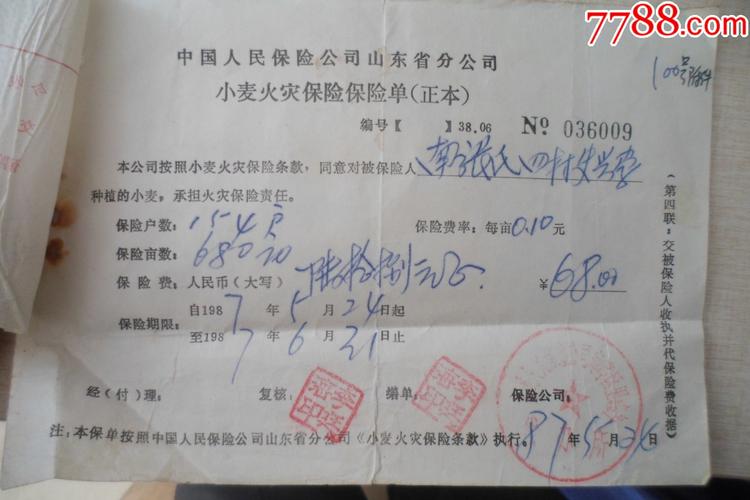 7788.com
中国人民保险公司山东省分公司
小麦火灾保险保险单（正本）
编号【 】38.06 № 036009
本公司按照小麦火灾保险条款，同意对被保险人
种植的小麦，承担火灾保险责任。
保险户数：154户 保险费率：每亩0.10元
保险亩数：680亩
保险费：人民币（大写）陆拾捌元正 ¥68.00
保险期限：自1987年5月24日起
至1987年6月21日止
经（付）理： 复核： 缮单： 保险公司：
87年5月24日
注：本保单按照中国人民保险公司山东省分公司《小麦火灾保险条款》执行。
（第四联：交被保险人收执并代保险费收据）